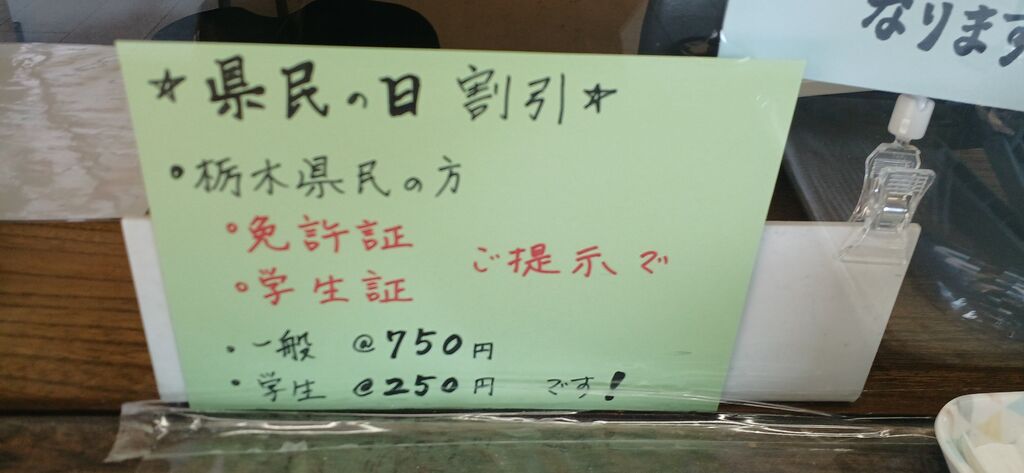 なります
☆県民の日 割引☆
・栃木県民の方
・免許証
・学生証 ご提示で
・一般 @750円
・学生 @250円 です!